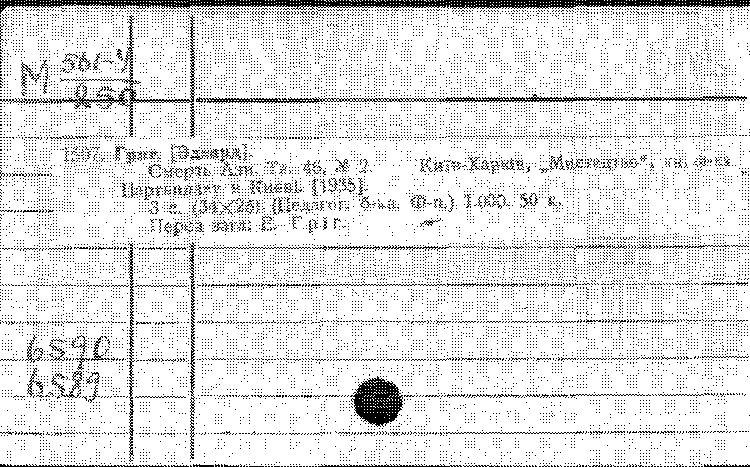 М 56(-4)
850
Гріг, [Эдвард].
Смерть Азн. Тв. 46, № 2. Київ-Харків, „Мистецтво", нн. ф-ка
Портвидату в Києві, [1935].
3 с. (34×26). (Педагог. б-ка. Ф-п.) 1.000. 50 к.
Перед загл: Е. Гріг.
6590
6589